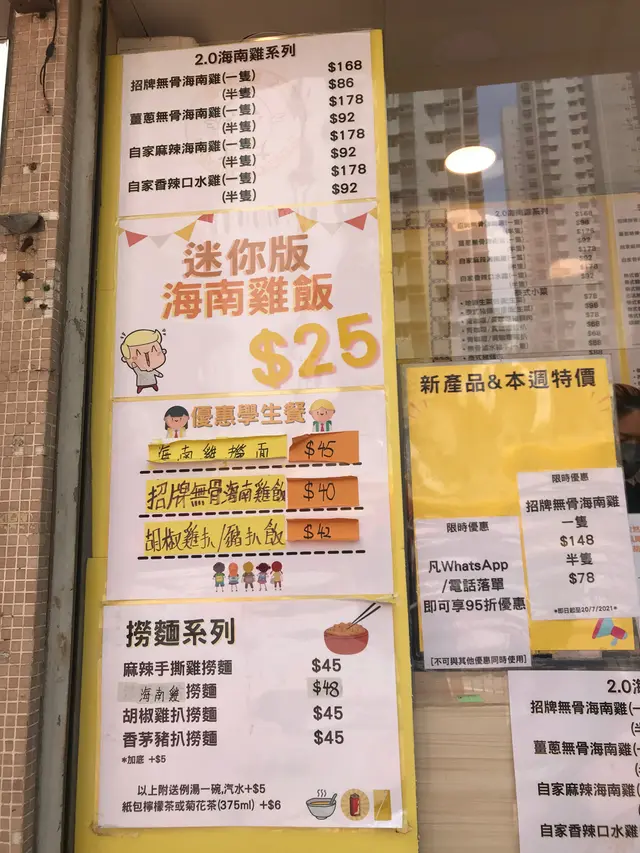 2.0海南雞系列
招牌無骨海南雞(一隻) $168
(半隻) $86
薑蔥無骨海南雞(一隻) $178
(半隻) $92
自家麻辣海南雞(一隻) $178
(半隻) $92
自家香辣口水雞(一隻) $178
(半隻) $92
迷你版
海南雞飯
$25
優惠學生餐
海南雞撈面 $45
招牌無骨海南雞飯 $40
胡椒雞扒/豬扒飯 $42
撈麵系列
麻辣手撕雞撈麵 $45
海南雞撈麵 $48
胡椒雞扒撈麵 $45
香茅豬扒撈麵 $45
*加底 +$5
以上附送例湯一碗,汽水+$5
紙包檸檬茶或菊花茶(375ml) +$6
新產品&本週特價
限時優惠
招牌無骨海南雞
一隻
$148
半隻
$78
*即日起至20/7/2021*
限時優惠
凡WhatsApp
/電話落單
即可享95折優惠
[不可與其他優惠同時使用]
2.0海
招牌無骨海南雞(一
(半
薑蔥無骨海南雞(一
(半
自家麻辣海南雞(一
(半
自家香辣口水雞(一